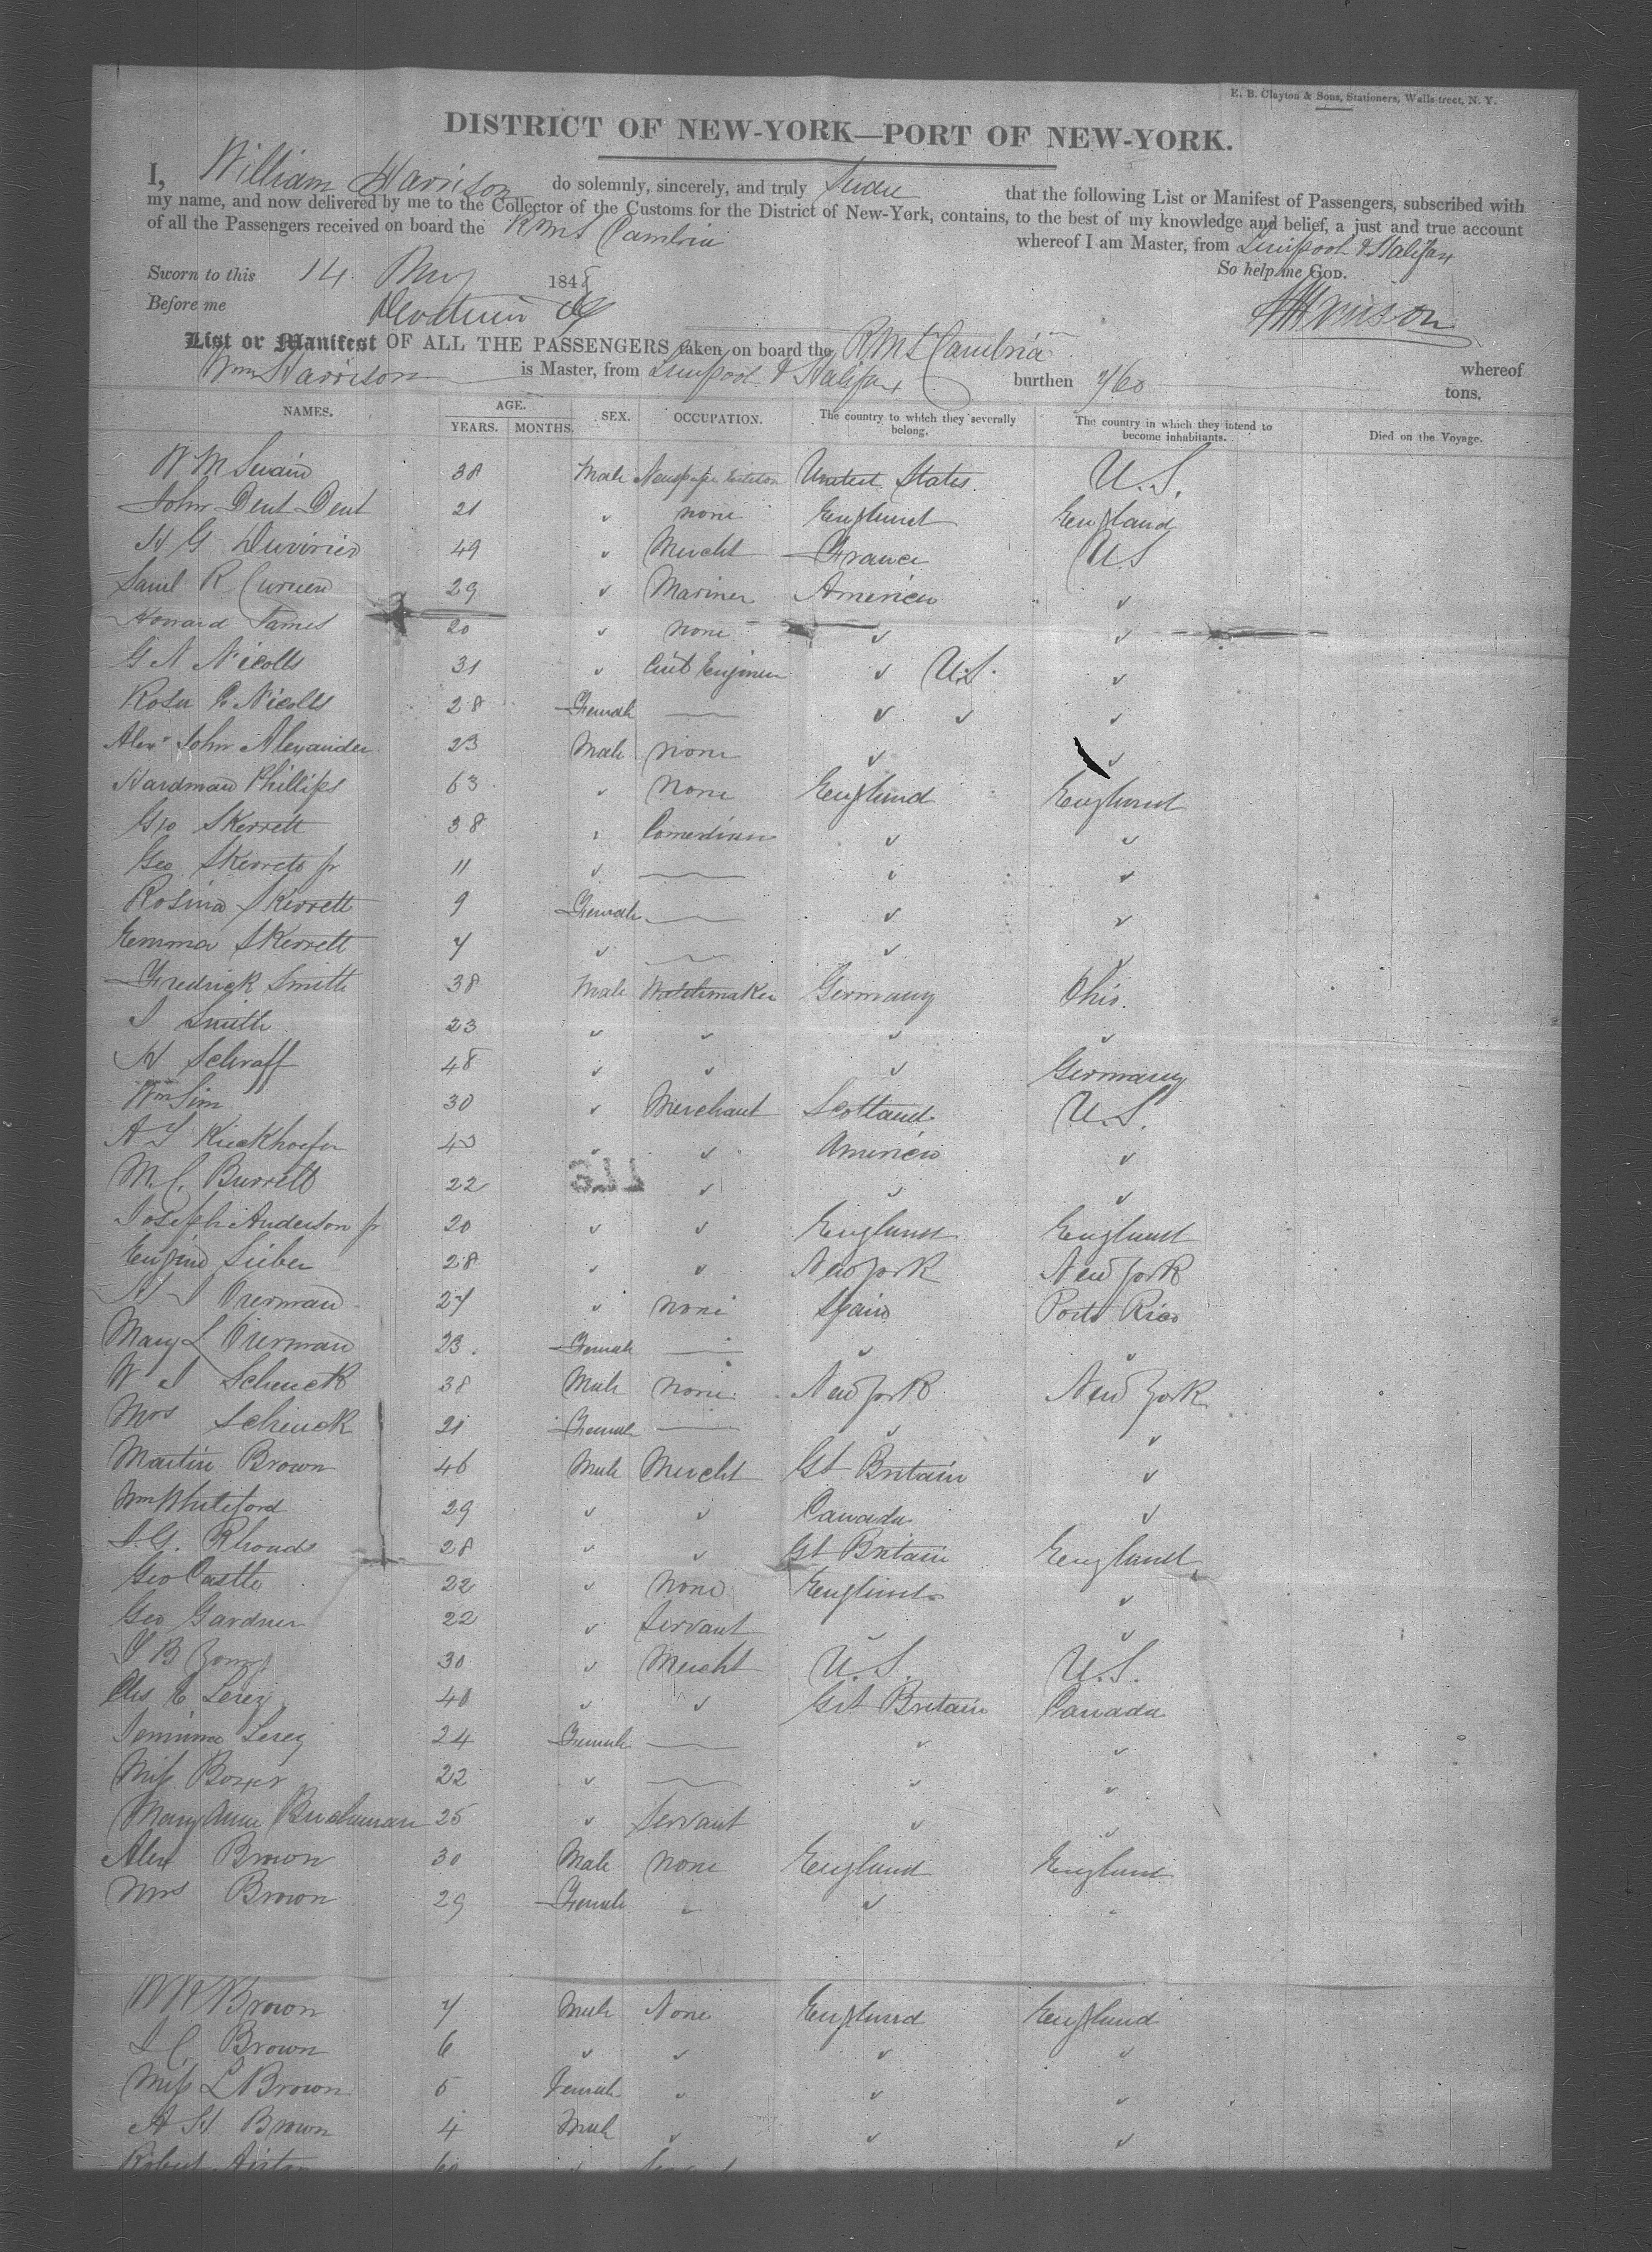 E. B. Clayton & Sons, Stationers, Wall-street, N. Y.
DISTRICT OF NEW-YORK—PORT OF NEW-YORK.
I, William Harrison do solemnly, sincerely, and truly that the following List or Manifest of Passengers, subscribed with
my name, and now delivered by me to the Collector of the Customs for the District of New-York, contains, to the best of my knowledge and belief, a just and true account
of all the Passengers received on board the RMS Cambria whereof I am Master, from Liverpool & Halifax
Sworn to this 14 1848 So help me GOD.
Before me
List or Manifest OF ALL THE PASSENGERS taken on board the RMS Cambria whereof
Wm Harrison is Master, from Liverpool & Halifax burthen 760 tons.
NAMES. AGE. YEARS. MONTHS. SEX. OCCUPATION. The country to which they severally belong. The country in which they intend to become inhabitants. Died on the Voyage.
W M Swain 38 Male Newspaper United States. U.S.
John Dent Dent 21 ✓ none England England
H G 49 ✓ Mercht France U.S
Saml R Curwen 29 ✓ Mariner America ✓
Howard James 20 ✓ none ✓ ✓
G N Nicolls 31 ✓ Civil Engineer ✓ U.S. ✓
Rosa C Nicolls 28 Female — ✓ ✓ ✓
Alexr John Alexander 23 Male none ✓ ✓
Hardman Phillips 63 ✓ None England England
Geo Skerrett 38 ✓ Comedian ✓ ✓
Geo Skerrett jr 11 ✓ — ✓ ✓
Rosina Skerrett 9 Female — ✓ ✓
Emma Skerrett 7 ✓ — ✓ ✓
Fredrick Smith 38 Male Watchmaker Germany Ohio.
J Smith 23 ✓ ✓ ✓ ✓
H Schraff 48 ✓ ✓ ✓ Germany
Wm Sim 30 ✓ Merchant Scotland U.S.
A T Kieckhoefer 43 ✓ ✓ America ✓
M. C. Burrell 22 ✓ ✓ ✓
Joseph Anderson jr 20 ✓ ✓ England England
Eugene Lieber 28 ✓ ✓ New York New York
Overman 27 ✓ none Spain Porto Rico
Mary L Overman 23. Female — ✓ ✓
W J Schenck 38 Male none New York New York
Mrs Schenck 21 Female — ✓ ✓
Martin Brown 46 Male Mercht Gt Britain ✓
Wm Whiteford 29 ✓ ✓ Canada ✓
J. G. Rhoads 28 ✓ ✓ Gt Britain England
Geo Castle 22 ✓ none England ✓
Geo Gardner 22 ✓ Servant ✓ ✓
J B Young 30 ✓ Mercht U.S. U.S.
Chs E 40 ✓ ✓ Grt Britain Canada
Jemima 24 Female — ✓ ✓
Miss Boxer 22 ✓ — ✓ ✓
Mary Anne Buchanan 25 ✓ Servant ✓ ✓
Alex Brown 30 Male none England England
Mrs Brown 29 Female ✓ ✓ ✓
W H Brown 7 Male None England England
J C Brown 6 ✓ ✓ ✓ ✓
Miss L Brown 5 Female ✓ ✓ ✓
A H Brown 4 Male ✓ ✓ ✓
Robert